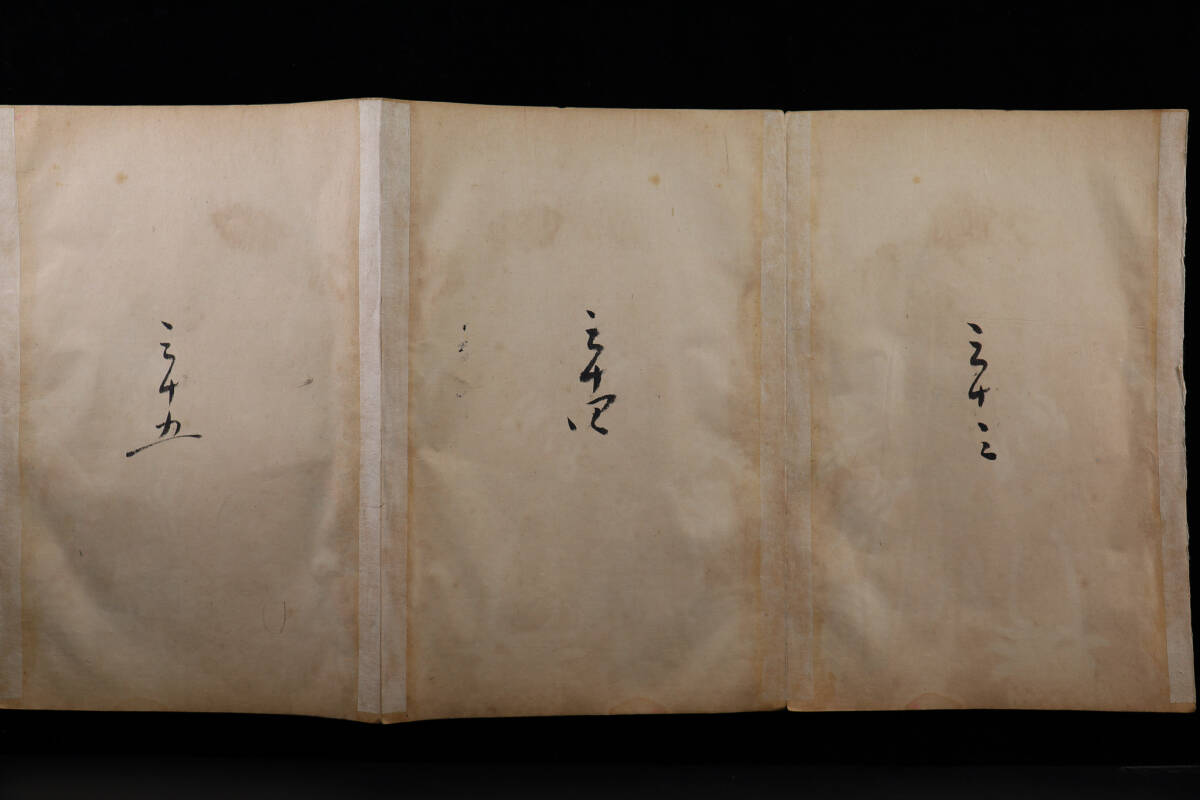 三十三
三十四
三十五